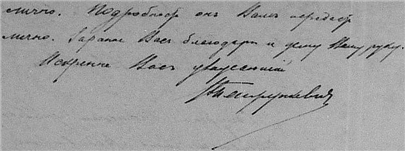 лично. Подробнѣе онъ Вамъ передастъ
лично. Заранѣе Васъ благодарю и жму Вашу руку.
Искренне Васъ уважающій